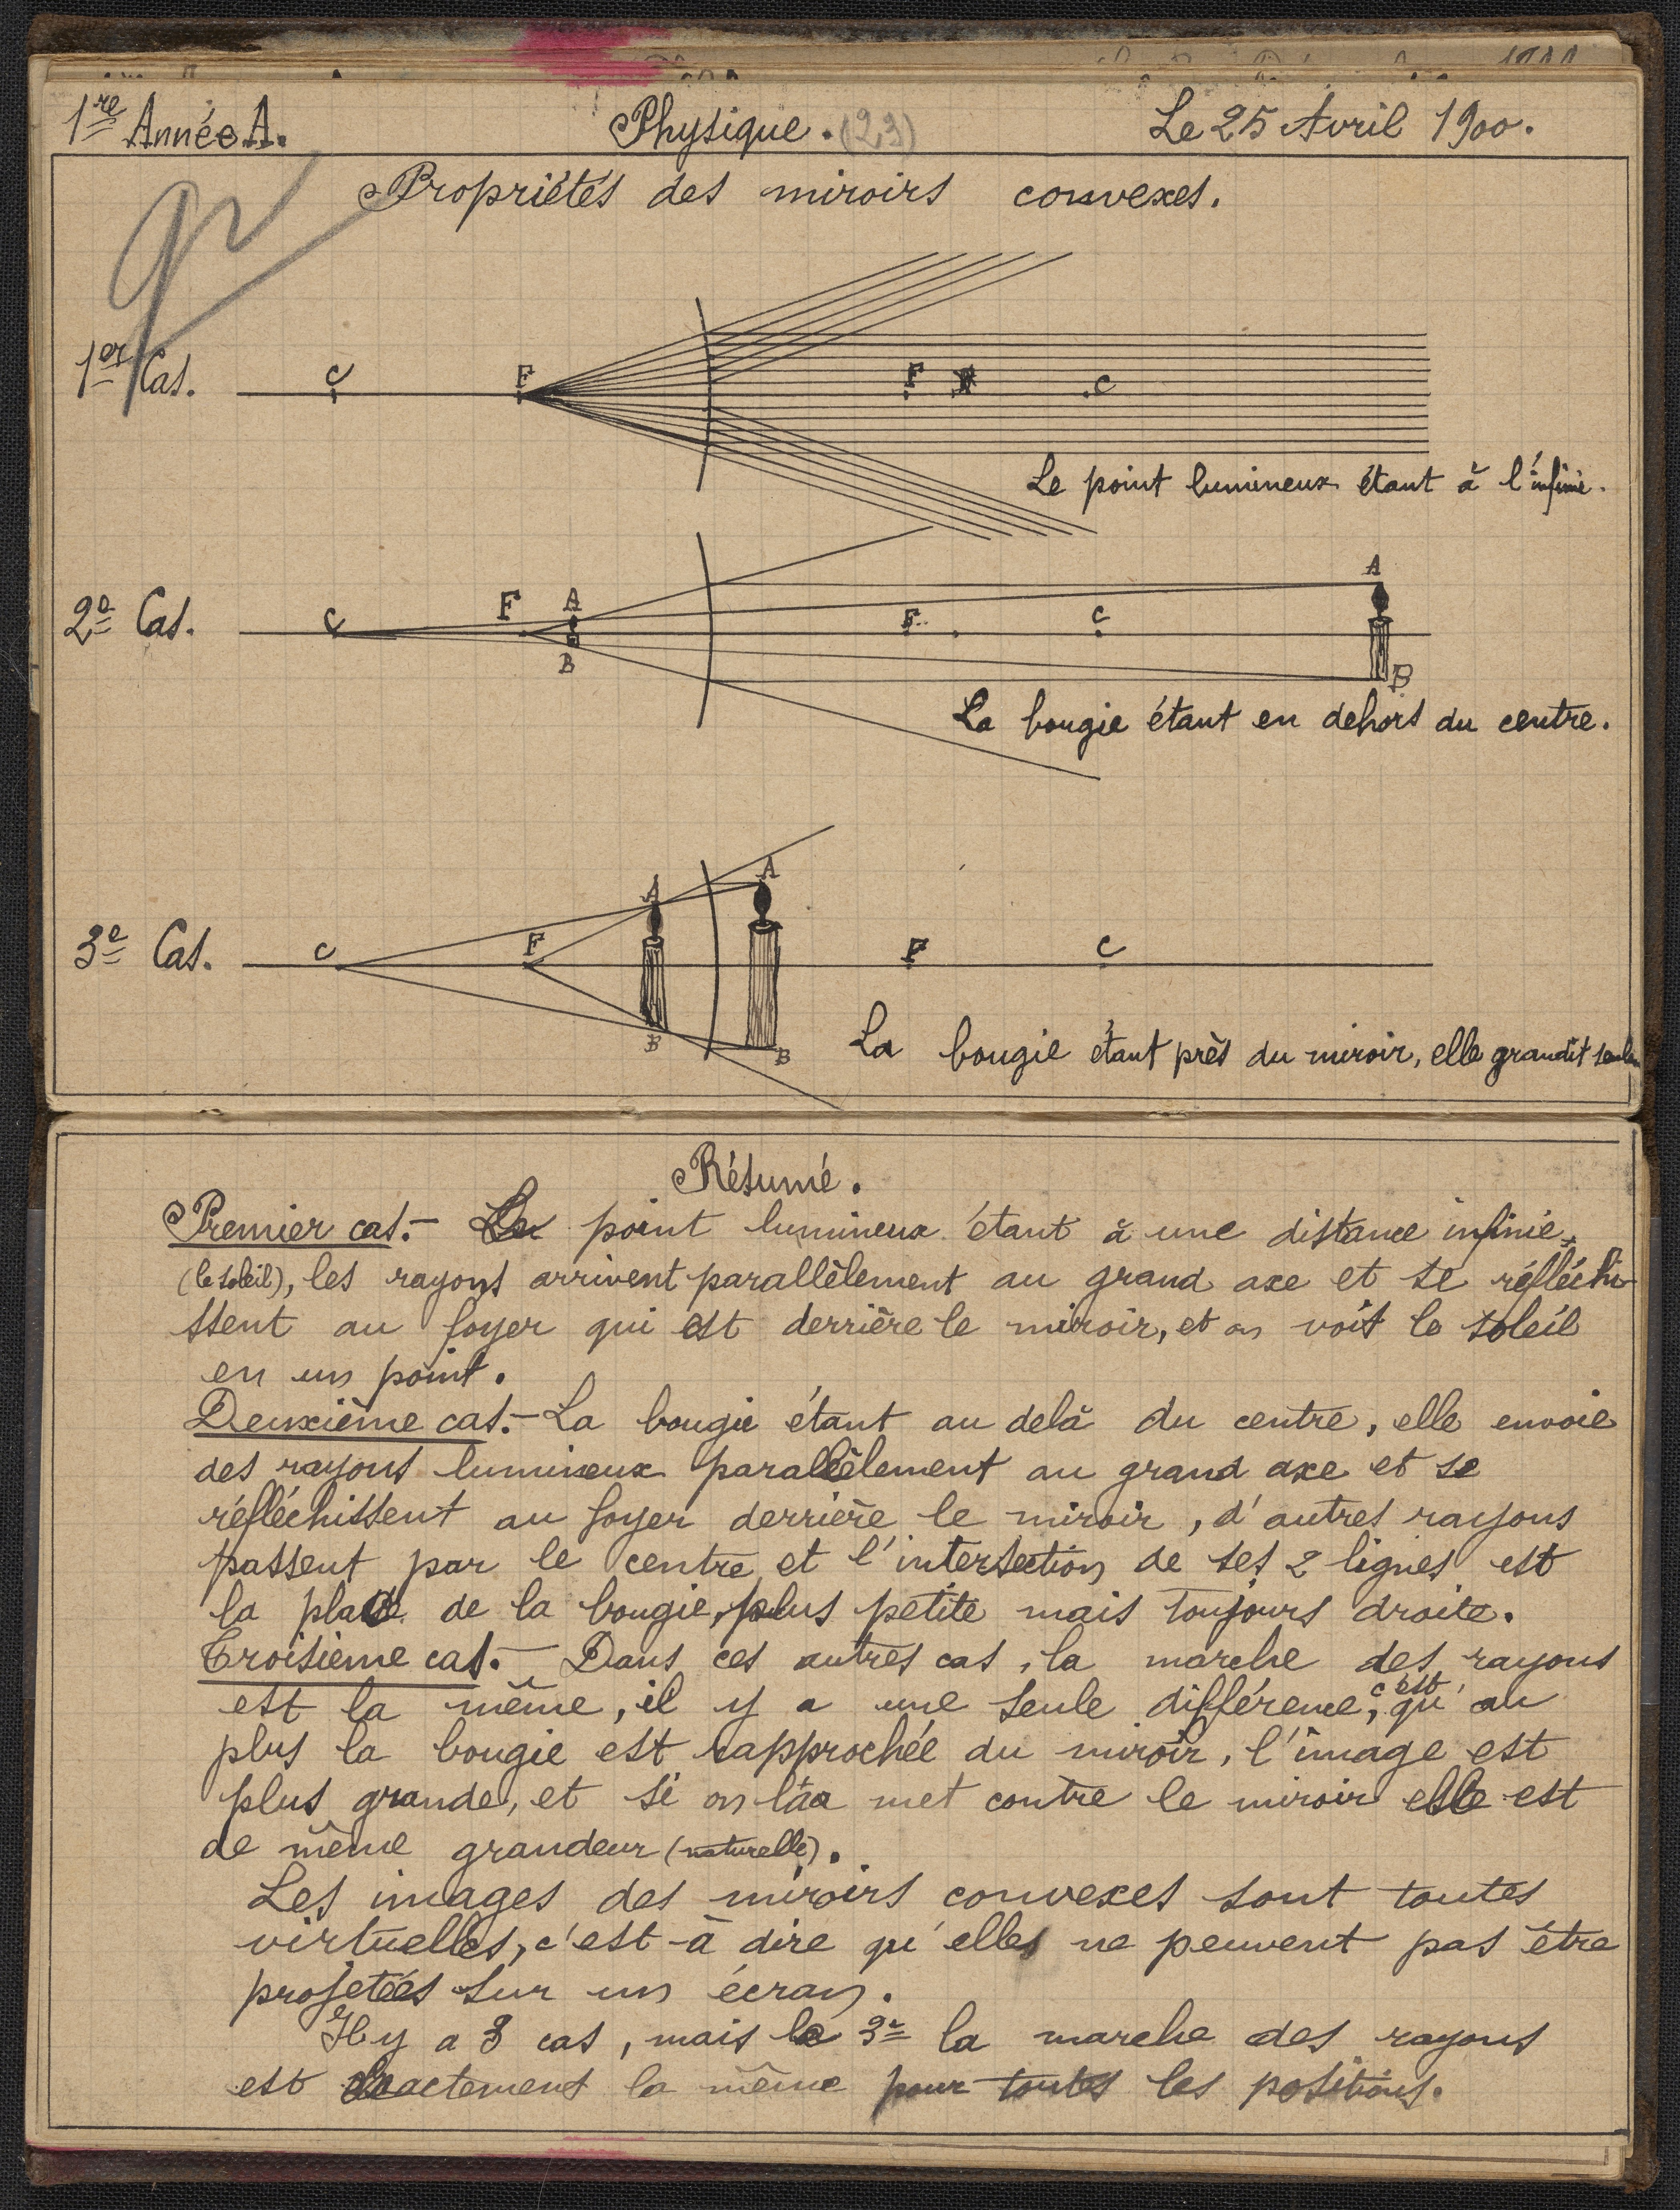 1re Année A.
Physique. (23)
Le 25 Avril 1900.
Propriétés des miroirs convexes.
1er Cas.
C
F
F
C
Le point lumineux étant à l'infini.
2e Cas.
C
F
A
B
F
C
A
B
La bougie étant en dehors du centre.
3e Cas.
C
F
A
B
A
B
F
C
La bougie étant près du miroir, elle grandit
Résumé.
Premier cas. - Le point lumineux étant à une distance infinie
(le soleil), les rayons arrivent parallèlement au grand axe et se réfléchi-
ssent au foyer qui est derrière le miroir, et on voit le soleil
en un point.
Deuxième cas. - La bougie étant au delà du centre, elle envoie
des rayons lumineux parallèlement au grand axe et se
réfléchissent au foyer derrière le miroir, d'autres rayons
passent par le centre et l'intersection de ses 2 lignes est
la place de la bougie, plus petite mais toujours droite.
Troisième cas. - Dans ces autres cas, la marche des rayons
est la même, il y a une seule différence, c'est qu'au
plus la bougie est rapprochée du miroir, l'image est
plus grande, et si on la met contre le miroir elle est
de même grandeur (naturelle).
Les images des miroirs convexes sont toutes
virtuelles, c'est-à dire qu'elles ne peuvent pas être
projetées sur un écran.
Il y a 3 cas, mais le 3e la marche des rayons
est exactement la même pour toutes les positions.